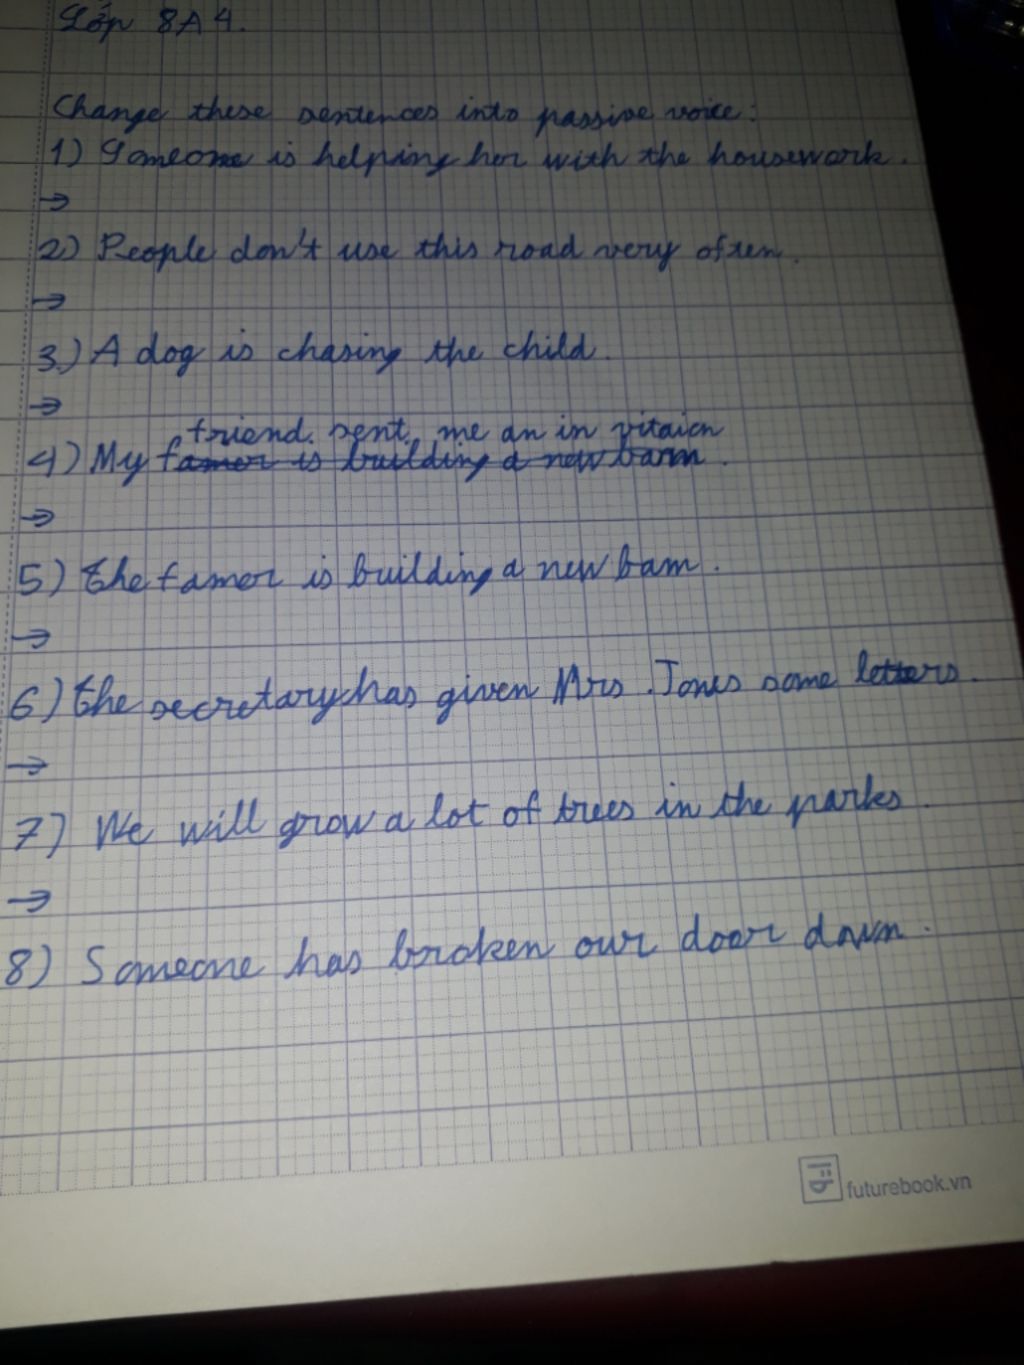 Lớp 8A4.
Change these sentences into passive voice:
1) Someone is helping her with the housework.
→
2) People don't use this road very often.
→
3.) A dog is chasing the child.
→
friend sent me an in vitaion
4) My famer is building a new barm.
→
5) the famer is building a new bam.
→
6) the secretary has given Mrs. Jones some letters.
→
7) We will grow a lot of trees in the parks.
→
8) Someone has broken our door down.
futurebook.vn